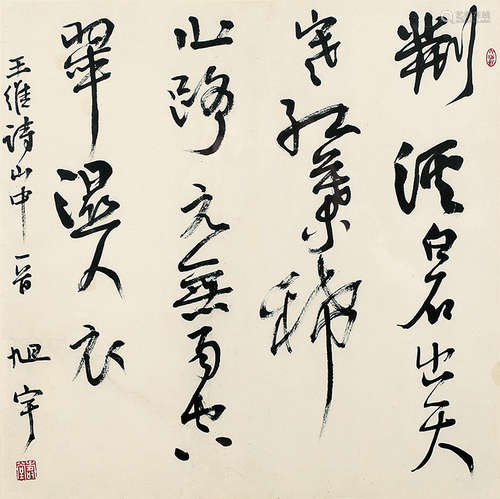 荆溪白石出天
寒红葉稀
山路元無雨空
翠濕人衣
王維詩山中一首 旭宇